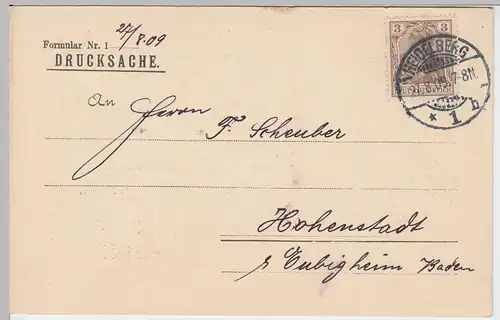 27/8.09
Formular Nr. 1
DRUCKSACHE.
3 3
HEIDELBERG
8.09. 7-8N.
* 1 b
An
Herrn F. Scheuber
Hohenstadt
Eubigheim Baden